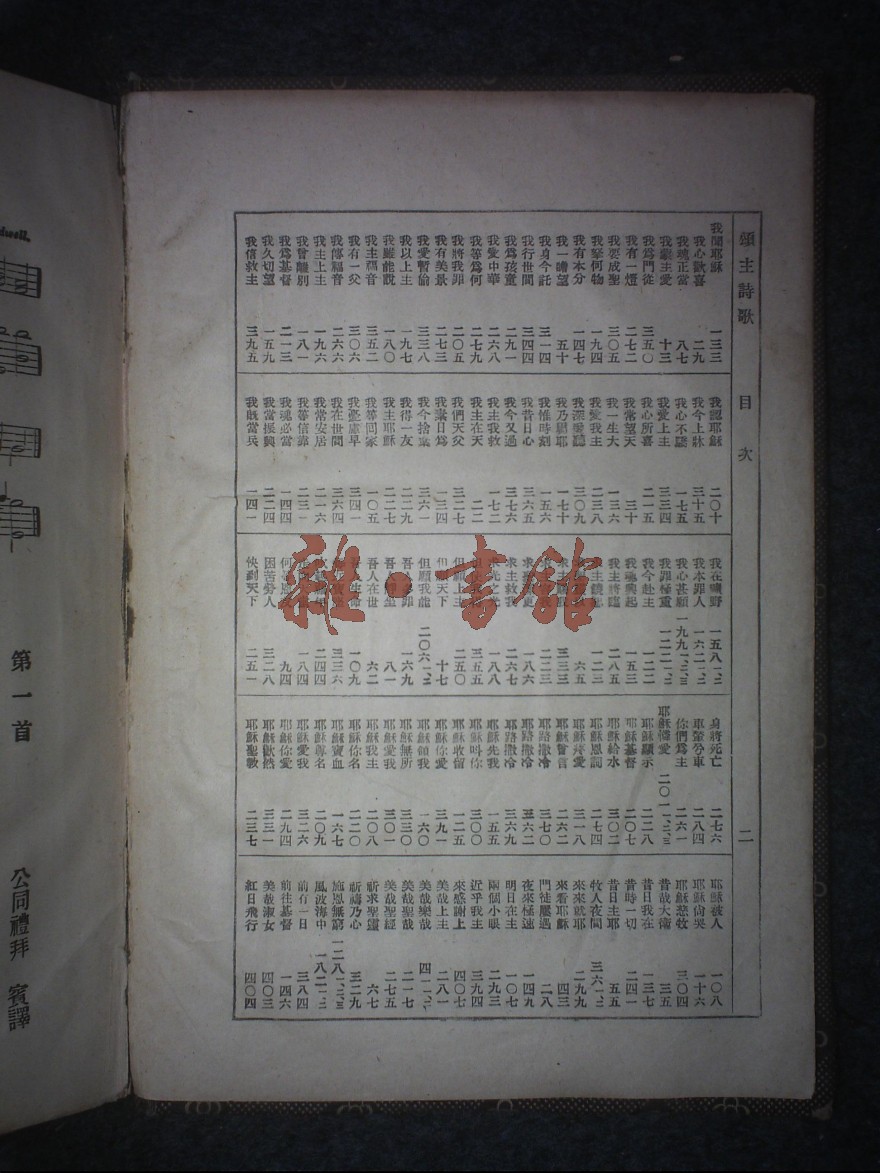 第一首
公同禮拜 賓譯
頌主詩歌 目次 二
我聞耶穌 一三三
我心歡喜 二九
我魂正當 八七
我蒙主愛 十三
我爲門徒 三五〇
我有一燈 二七二
我要成聖 三〇五
我堅何物 一九四
我有本分 一四七
我一 望 五十
我身今託 三一四
我行世間 三四四
我爲孩童 二九一
我愛中華 二六八
我等爲何 二七九
我將我罪 二〇五
我有美景 二七三
我愛暫偷 三三八
我以上主 一九七
我雖能說 一八〇
我主福音 三五二
我有一父 三〇六
我傳福音 二六六
我主上主 一九六
我曾離別 一八一
我爲基督 二一三
我久切望 一五九
我信救主 三九五
我認耶穌 二〇十
我今上牀 三十五
我心不驕 一七五
我愛上主 三三四
我心所喜 二一五
我常望天 三十
我一生大 一三六
我愛我主 二三八
我深愛聽 三〇九
我乃願耶 一七十
我惟時刻 一五六
我昔日心 三六五
我今又過 三七六
我主我救 一七二
我主在天 二二
我們天父 三二七
我素日爲 一三四
我今捨棄 三六一
我得一友 二二九
我主耶穌 二二七
我等回家 一〇五
我憂慮早 三四一
我在世間 三六四
我常安居 二一六
我等信靠 二三一
我魂必當 一四四
我當振興 二二四
我既當兵 一四一
我在曠野 一五八一、二
我本罪人 一六二一、二
我心甚願 一九九一、二、三
我罪極重 一二二一、二
我今赴主 一二二
我魂興起 一五三
我主將臨 二八五
一二三
六五
三三三
二二三
二六七
求主救我 一八八
三五五
但願上主 二五〇
但 天下 十七
但願我能 二〇六一、二
一六九
八一
吾人在世 六二
一〇九
三三六
二四四
一八四
九四
因苦勞人 三二八
快到天下 二五一
身將死亡 二七六
車聲兮車 二八四
你們爲主 二六一
耶穌慈愛 二〇一一、二、三
耶穌顯示 二二八
耶穌基督 二〇七
耶穌給水 三〇二
耶穌恩詞 二七四
耶穌疼愛 三一八
耶穌曾言 二六二
耶路撒冷 三七〇
耶路撒冷 三六二
耶路撒冷 三六九
耶穌先我 一五五
耶穌叫你 三〇〇
耶穌收留 一二五
耶穌你愛 三九一
耶穌領我 一六〇
耶穌無所 三三〇
耶穌愛我 三〇一
耶穌我主 二〇八
耶穌你名 二二〇
耶穌寶血 一六七
耶穌尊名 二〇九
耶穌愛我 三二六
耶穌你愛 二九四
耶穌歡然 三三一
耶穌聖教 二三七
耶穌被人 一〇八
耶穌尙哭 一十六
耶穌慈牧 三〇四
昔哉大衛 三五
昔日我在 一三七
昔時一切 二四一
昔日主耶 五五
牧人夜間 三六一、二
來來就耶 二九九
來看耶穌 四三
門徒屢遇 二八
夜來極速 一四九
明日在主 一〇七
兩個小眼 二九三
近乎我主 三九四
來感謝上 四〇七
美哉上主 二八一
美哉樂哉 四一一、二
美哉聖哉 二一七
美哉聖經 二七五
祈求聖靈 六七
祈禱乃心 三二九
施恩無窮 一二八一、二、三
風波海中 一八二一、二
前有一日 三八四
前往基督 一四六
美哉淑女 四〇三
紅日飛行 四〇四
雜·書館